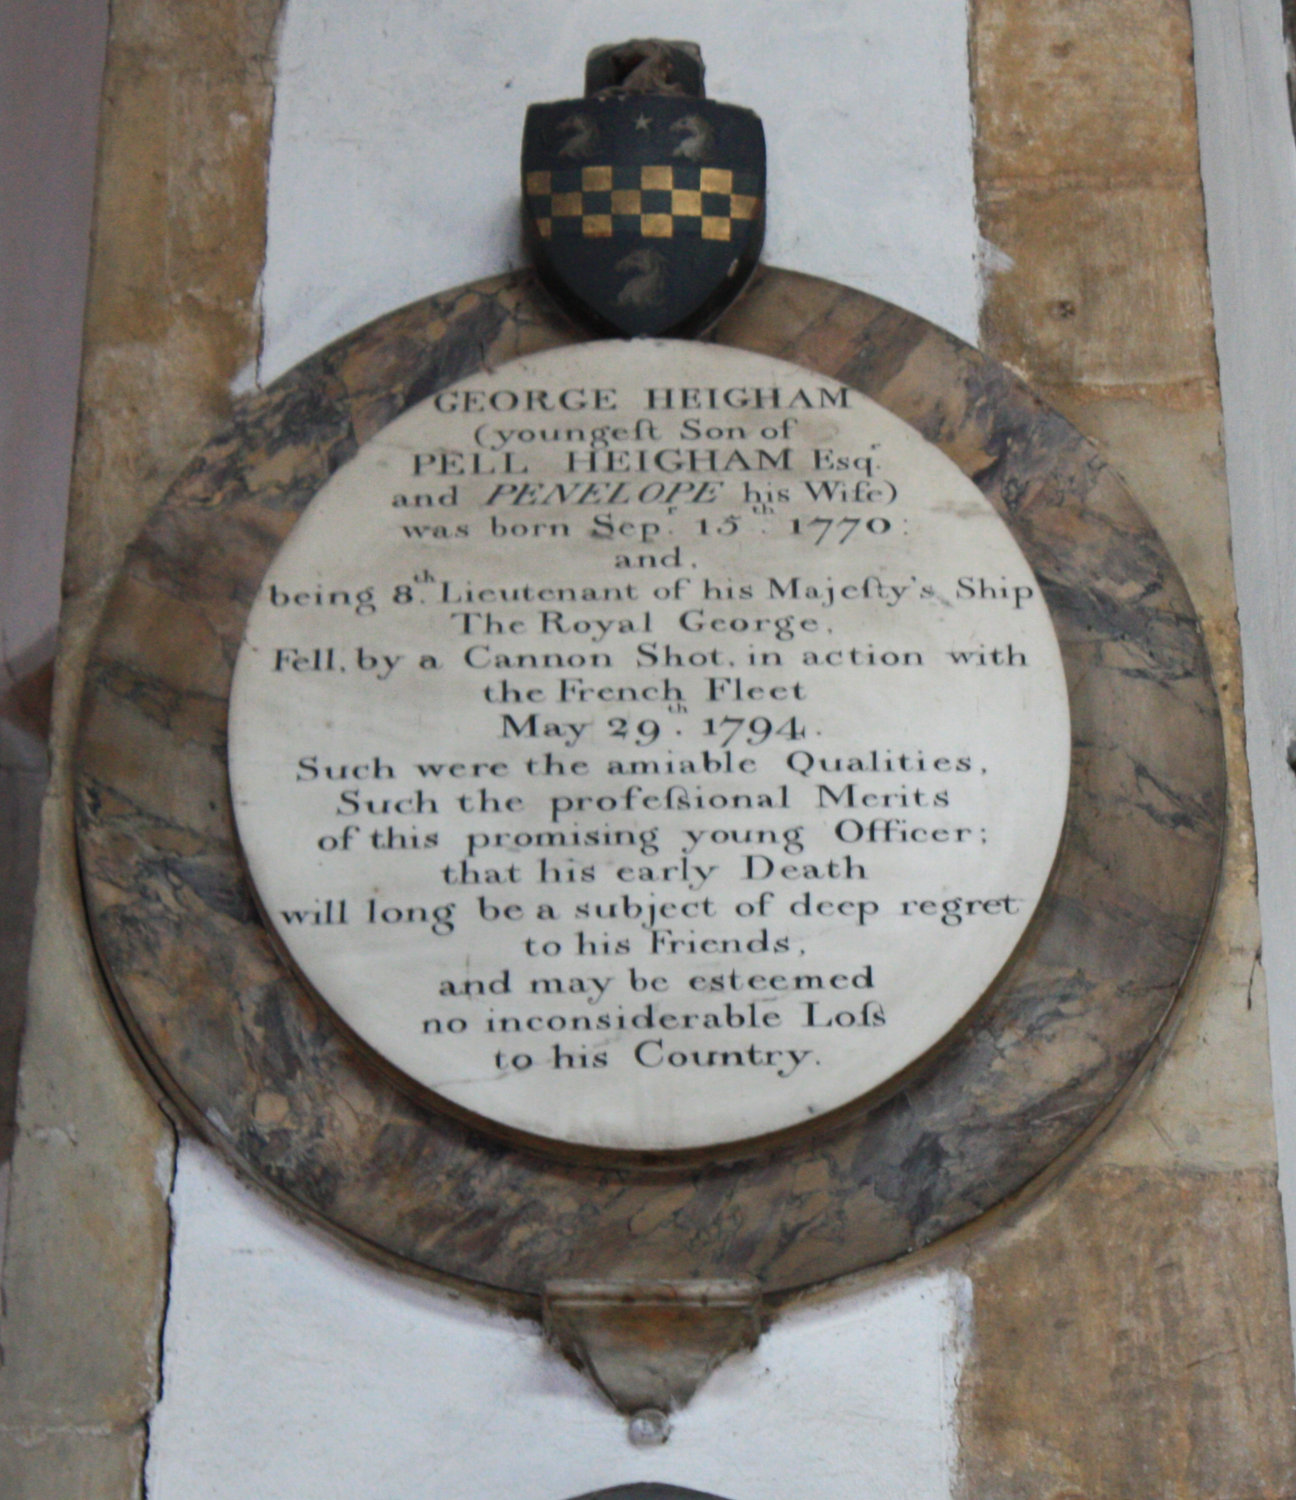 GEORGE HEIGHAM
(youngeſt Son of
PELL HEIGHAM Esqr.
and PENELOPE his Wife)
was born Sepr. 15th. 1770:
and,
being 8th. Lieutenant of his Majeſty's Ship
The Royal George,
Fell, by a Cannon Shot, in action with
the French Fleet
May 29th. 1794.
Such were the amiable Qualities,
Such the profeſsional Merits
of this promising young Officer;
that his early Death
will long be a subject of deep regret
to his Friends,
and may be esteemed
no inconsiderable Loſs
to his Country.